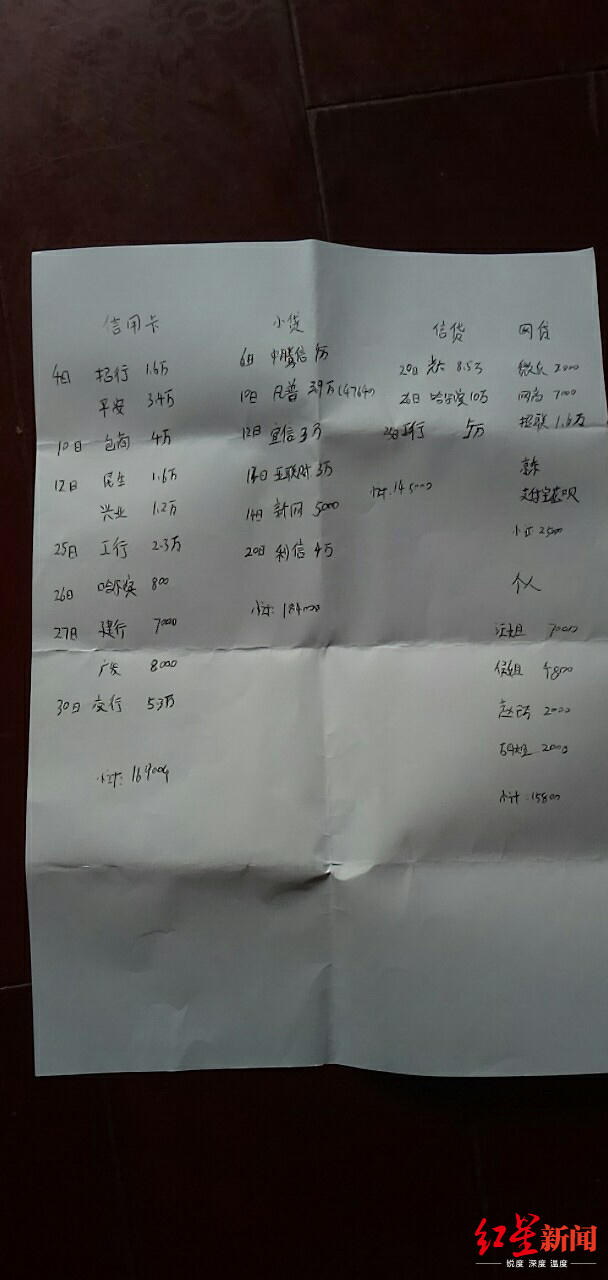 信用卡
4日 招行 1.6万
平安 3.4万
10日 包商 4万
12日 民生 1.6万
兴业 1.2万
25日 工行 2.3万
26日 哈尔滨 800
27日 建行 7000
广发 8000
30日 交行 5.3万
小计:
小贷
6日 中腾信
10日 凡普 3.9万
12日 宜信 3万
3万
14日 新网 5000
20日 利信 4万
小计: 184000
信贷
20日 光大 8.5万
26日 哈尔滨 10万
工行 5万
小计: 145000
网贷
7000
招联 1.6万
京东
支付宝
小计
个人
7000
4800
2000
2000
小计: 15800
红星新闻
锐度 深度 温度